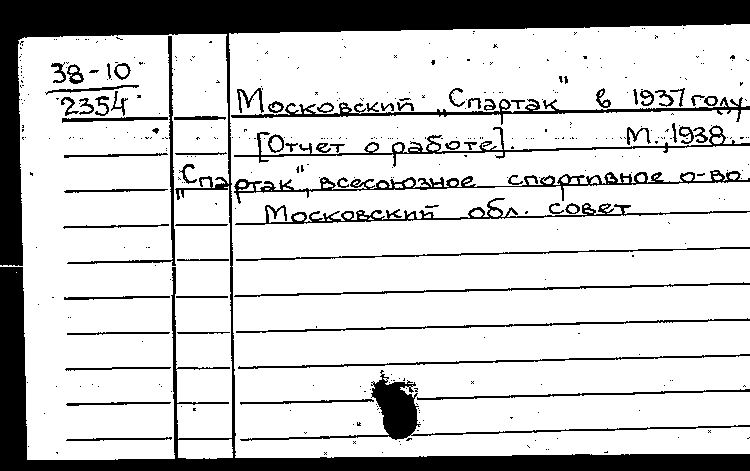 38-10
2354
Московский „Спартак" в 1937 году
[Отчет о работе]. М., 1938.
„Спартак", всесоюзное спортивное о-во
Московский обл. совет